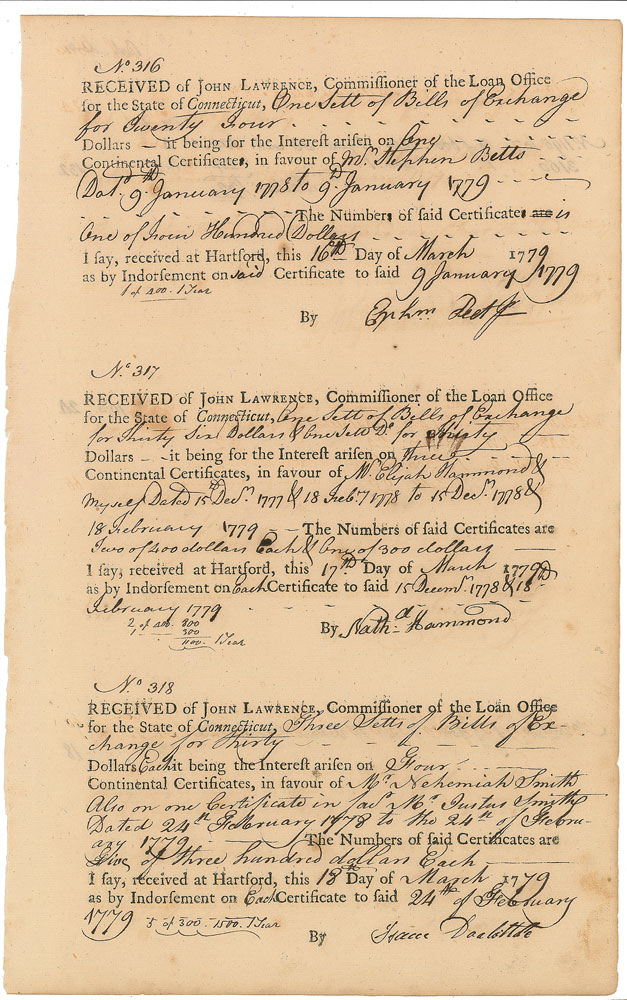 No. 316
RECEIVED of JOHN LAWRENCE, Commiſſioner of the Loan Office
for the State of Connecticut, One Sett of Bills of Exchange
for Twenty Four
Dollars — it being for the Intereſt ariſen on One
Continental Certificates, in favour of Mr. Stephen Betts
Dat. 9th January 1778 to 9th January 1779
The Numbers of ſaid Certificates are is
One of Four Hundred Dollars
I ſay, received at Hartford, this 16th Day of March 1779
as by Indorſement on said Certificate to ſaid 9 January 1779
1 of 400. 1 Year
By Ephm
No. 317
RECEIVED of JOHN LAWRENCE, Commiſſioner of the Loan Office
for the State of Connecticut, One Sett of Bills of Exchange
for Thirty Six Dollars & One Sett Do. for Thirty
Dollars — it being for the Intereſt ariſen on three
Continental Certificates, in favour of Mr. Elijah Hammond &
myself Dated 15th Decr. 1777 & 18 Feby 1778 to 15 Decr. 1778 &
18 February 1779 — The Numbers of ſaid Certificates are
Two of 400 dollars Each & One of 300 dollars
I ſay, received at Hartford, this 17th Day of March 1779
as by Indorſement on Each Certificate to ſaid 15 Decemr. 1778 & 18th
February 1779
2 of 400. 800
1 300
1100. 1 Year
By Nathel. Hammond
No. 318
RECEIVED of JOHN LAWRENCE, Commiſſioner of the Loan Office
for the State of Connecticut, Three Setts of Bills of Ex-
change for Thirty
Dollars Each it being the Intereſt ariſen on Four
Continental Certificates, in favour of Mr. Nehemiah Smith
Also on one Certificate in favr Mr. Justus Smith
Dated 24th February 1778 to the 24th of Febru-
ary 1779 The Numbers of ſaid Certificates are
Five of three hundred dollars Each
I ſay, received at Hartford, this 18th Day of March 1779
as by Indorſement on Each Certificate to ſaid 24th of February
1779 5 of 300. 1500. 1 Year
By Isaac Doolittle